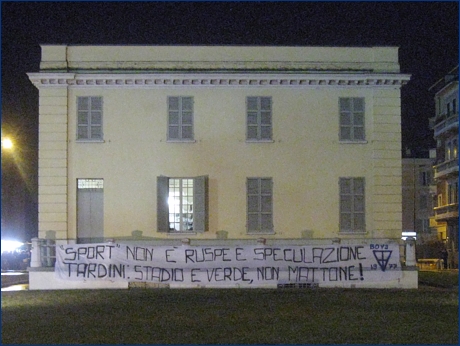 "SPORT" NON È RUSPE E SPECULAZIONE
TARDINI: STADIO E VERDE, NON MATTONE!
BOYS
1977